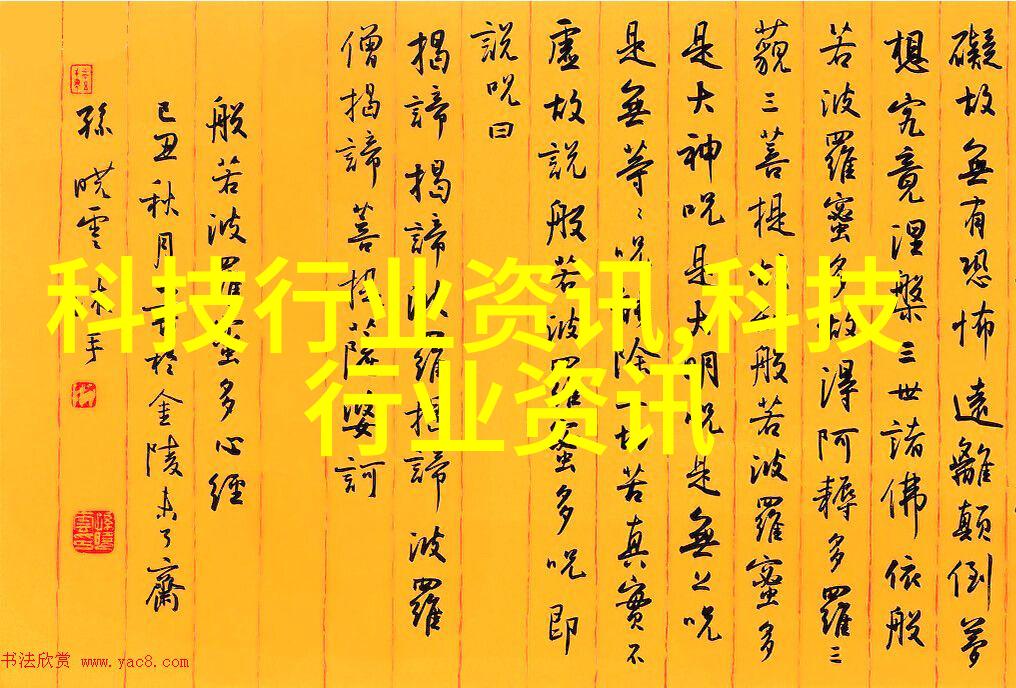 科技行业资讯,科技
行业资讯
礙故無有恐怖遠離顛倒夢
想究竟涅槃三世諸佛依般
若波羅蜜多故得阿耨多羅三
藐三菩提故知般若波羅蜜多
是大神咒是大明咒是無上咒
是無等〻咒能除一切苦真實不
虛故說般若波羅蜜多咒即
說咒曰
揭諦揭諦波羅揭諦波羅
僧揭諦菩提薩婆訶
般若波羅蜜多心經
己丑秋月於金陵未了齋
孫曉雲手
书法欣赏 www.yac8.com